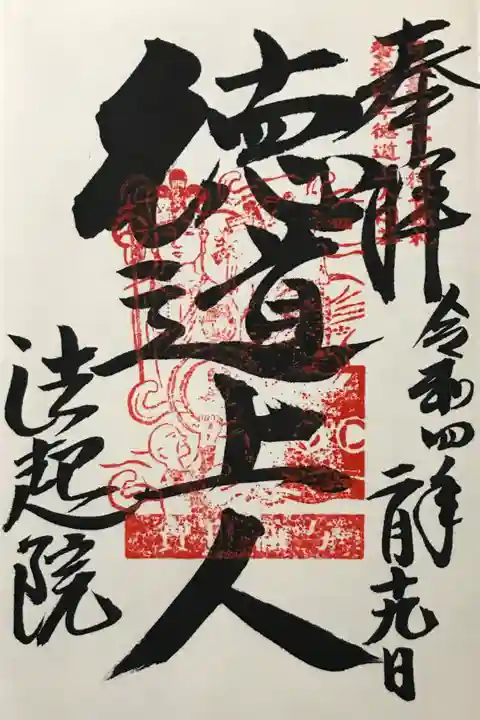 奉拝
令和四年二月十九日
徳道上人
法起院